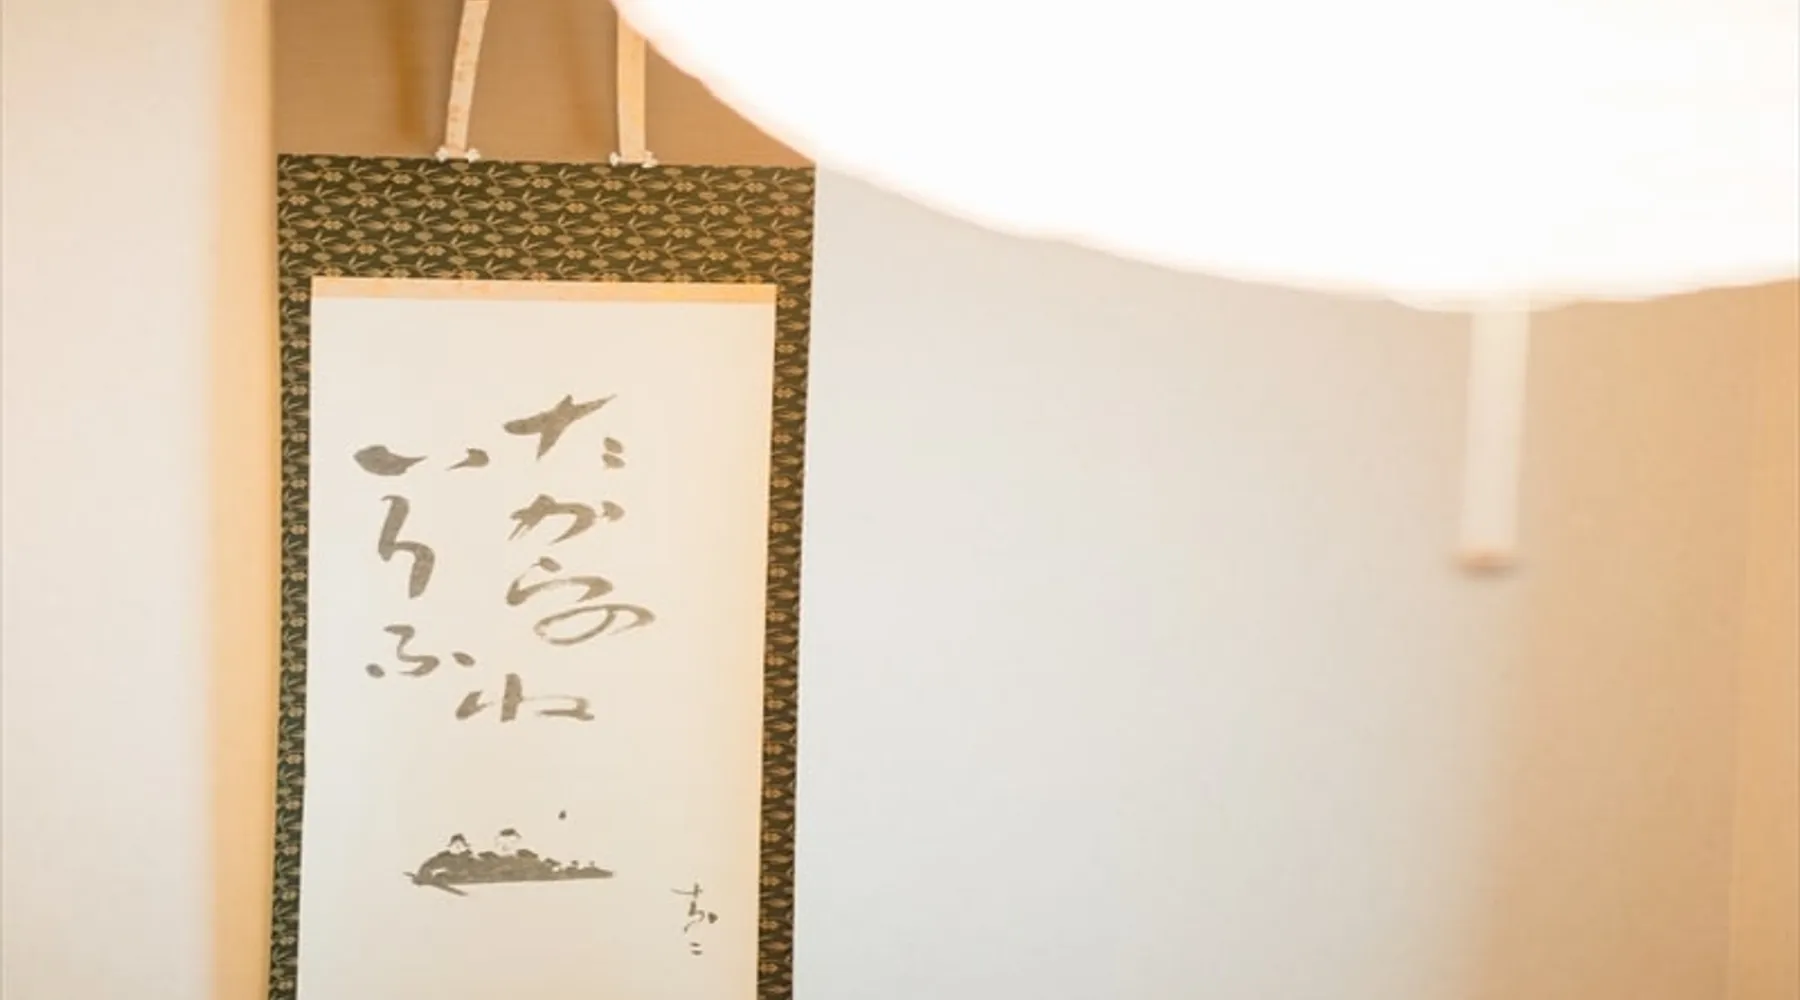 たからの
いりふね